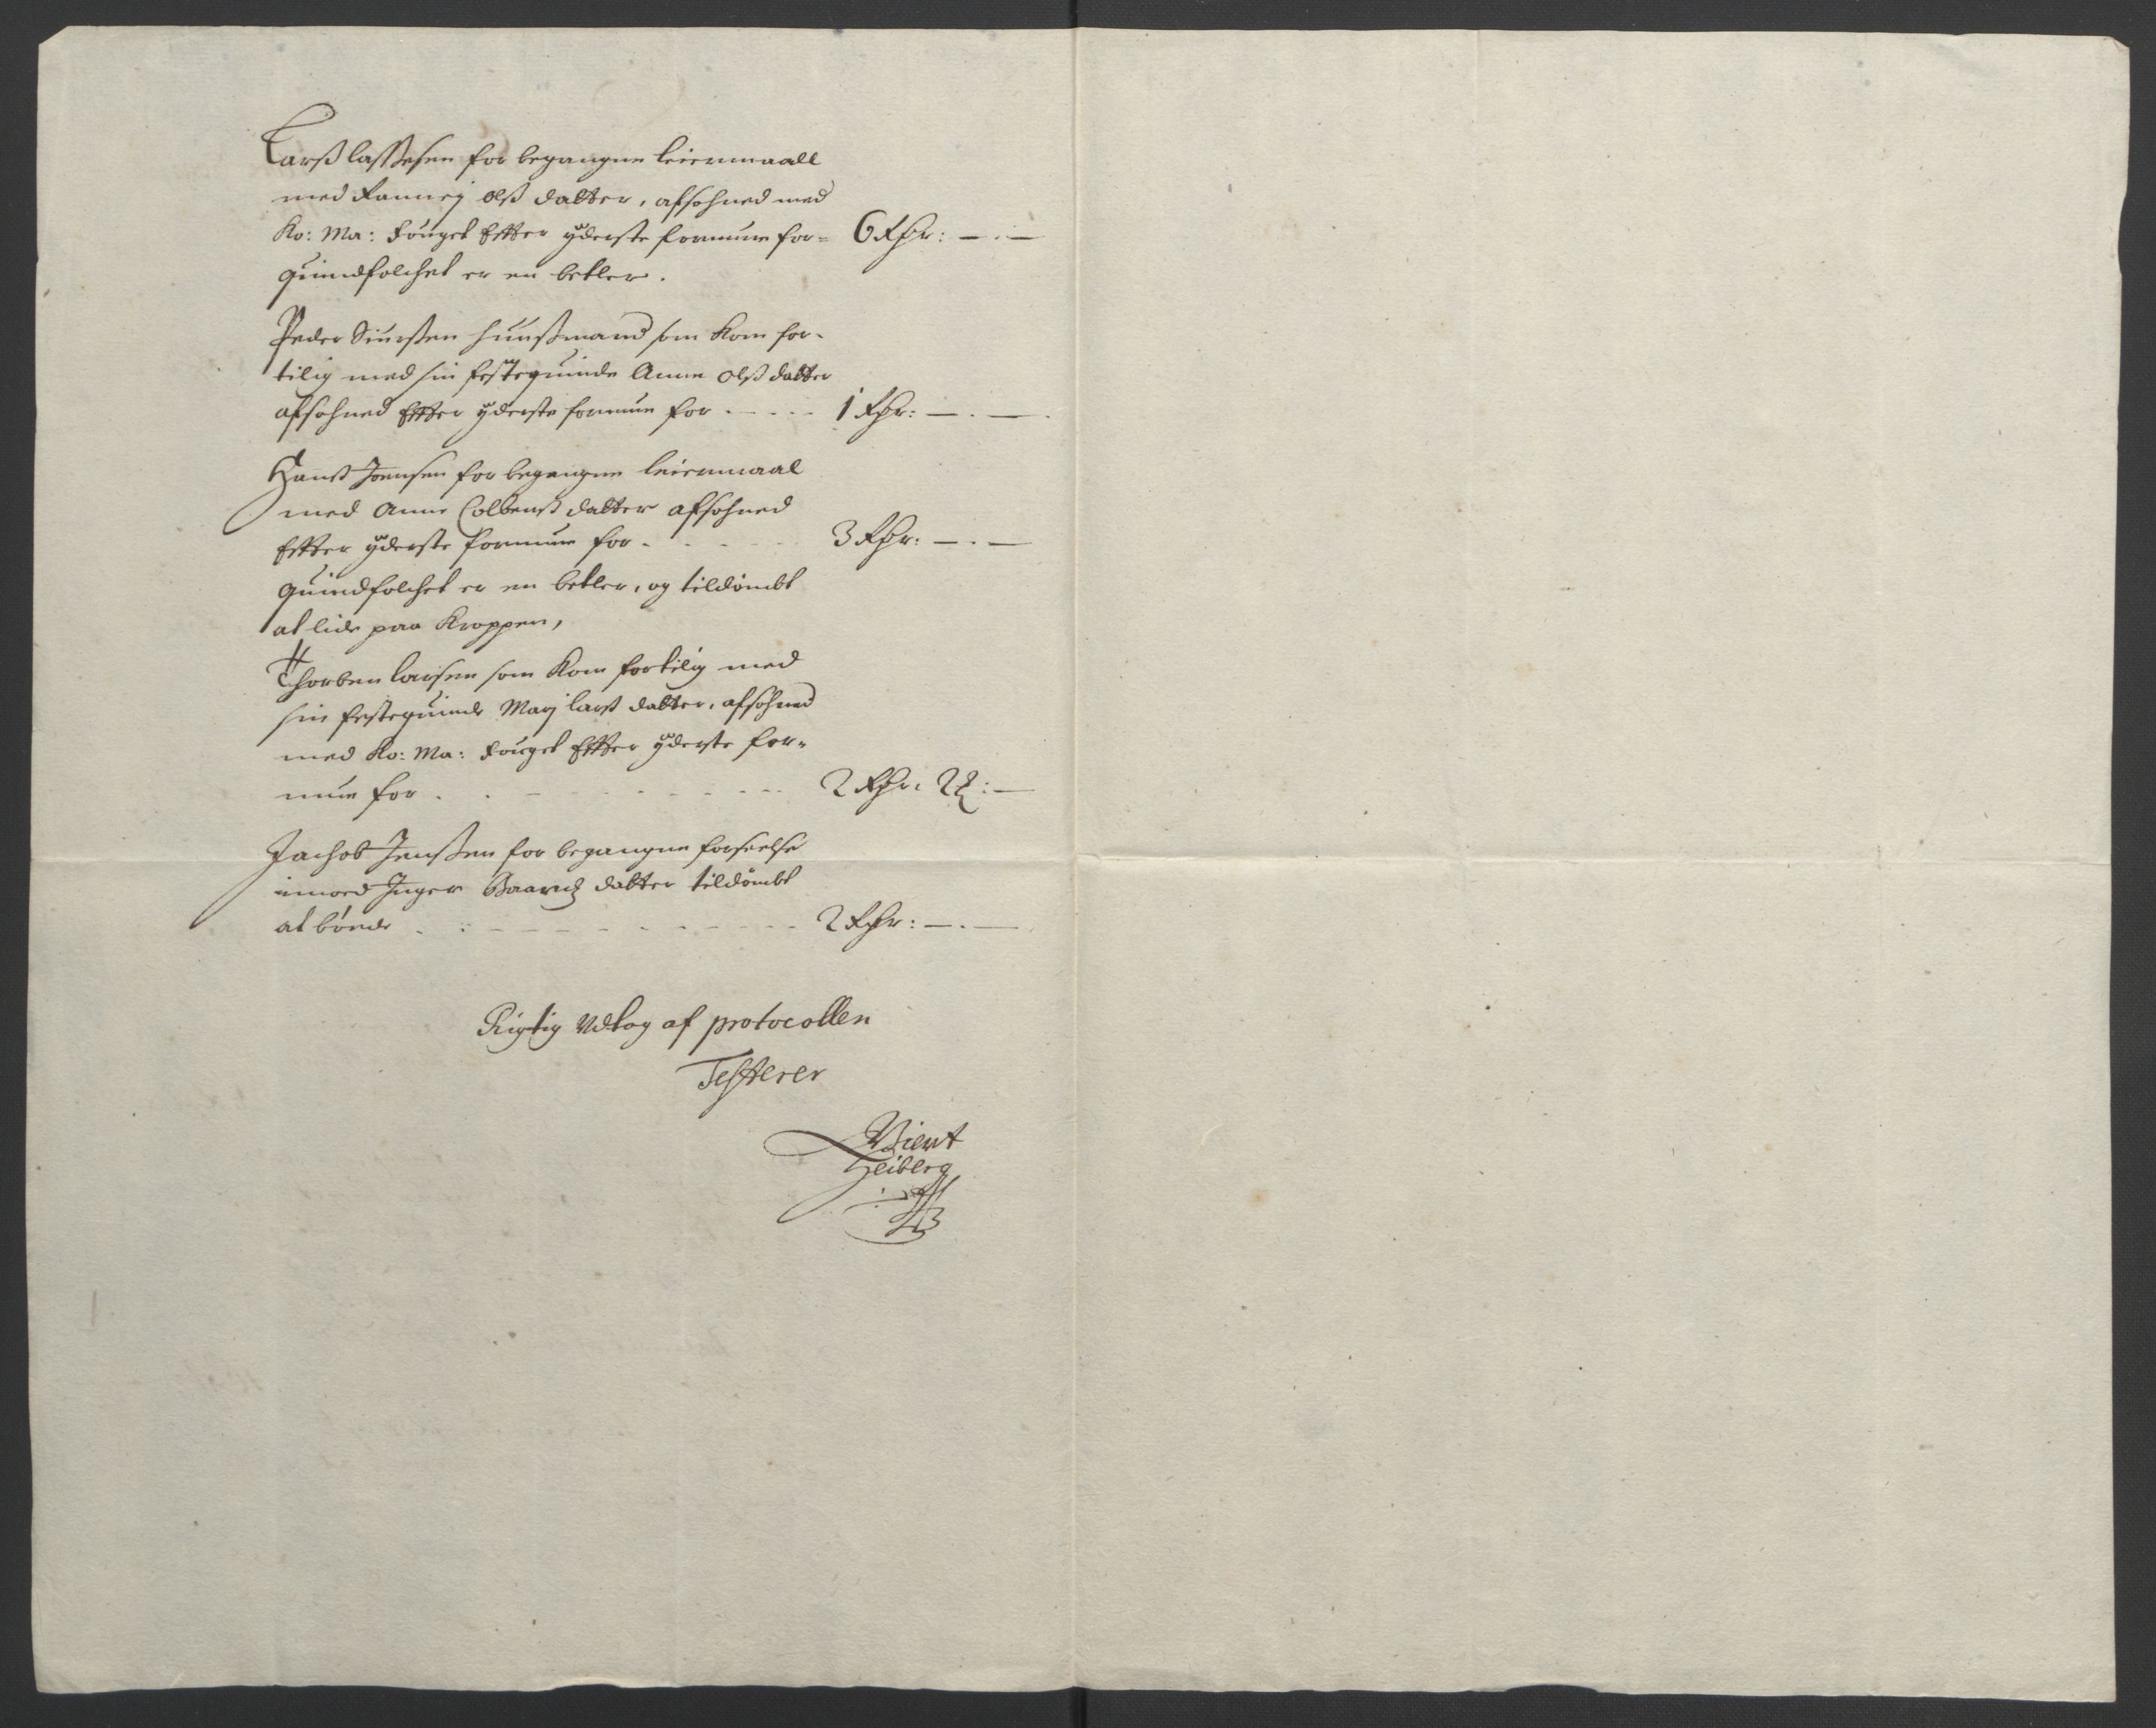 Larß lassesen for begangne leiermaall
med Rannej olß datter, afsohned med
Ko: Ma: fouget Effter yderste formue for- 6 Rdr: — . —
quindfolchet er en betler.
Peder Siursen huußmand som Kom for-
tilig med sin festequinde Anne olß datter
afsohned Effter yderste formue for - - - - 1 Rdr: — . — .
Hanß Joensen for begangne leiermaal
med Anne Colbenß datter afsohned
Effter yderste formue for - - - - 3 Rdr: — . —
quindfolchet er en betler, og tildömbt
at lide paa Kroppen,
Thorben larsen som Kom fortilig med
sin festequinde Marj larß datter, afsohned
med Ko: Ma: fouget Effter yderste for-
mue for . . - - - - - - - - 2 Rdr: 2 ꝶ: —
Jachob Jensen for begangne forseelse
imoed Inger Baardz datter tildömbt
at böede . : - - - - - - - - - 2 Rdr: — . —
Rigtig Udtog af protocollen
Testerer
Wiert
Heiberg